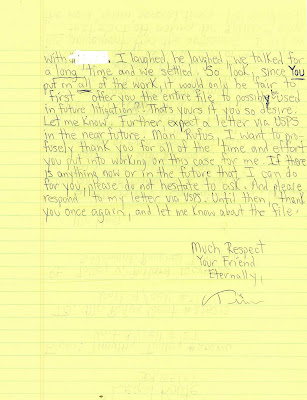 with . I laughed, he laughed, we talked for
a long time and we settled. So look, since You
put in all of the work, it would only be fair to
first offer you the entire file to possibly used
in future litigation?! Thats yours if you so desire.
Let me know. Further expect a letter via USPS
in the near future. Man Rufus, I want to pro-
fusely thank you for all of the time and effort
you put into working on this case for me. If there
is anything now or in the future that I can do
for you, please do not hesitate to ask. And please
respond to my letter via USPS. Until then, thank
you once again, and let me know about the file.
Much Respect
Your Friend
Eternally,